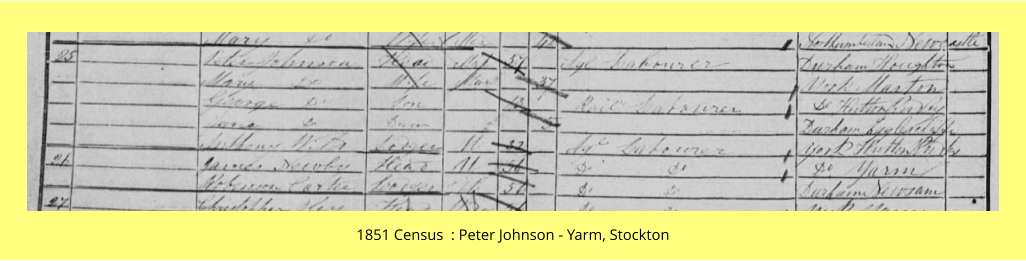 Mary Do Northumberland Newcastle
25 Peter Johnson Head Mar 57 Agl Labourer Durham Houghton
Mary Do Wife Mar 37 York Marton
George Do Son Rail Labourer Do Hutton Rudby
Jane Do Daur Durham
Anthony Lodger U 32 Agl Labourer York Hutton
26 James Newbie Head U Do Do Do Yarm
Robinson Carter Lodger Do Do Durham Newsam
27 Christopher
1851 Census : Peter Johnson - Yarm, Stockton